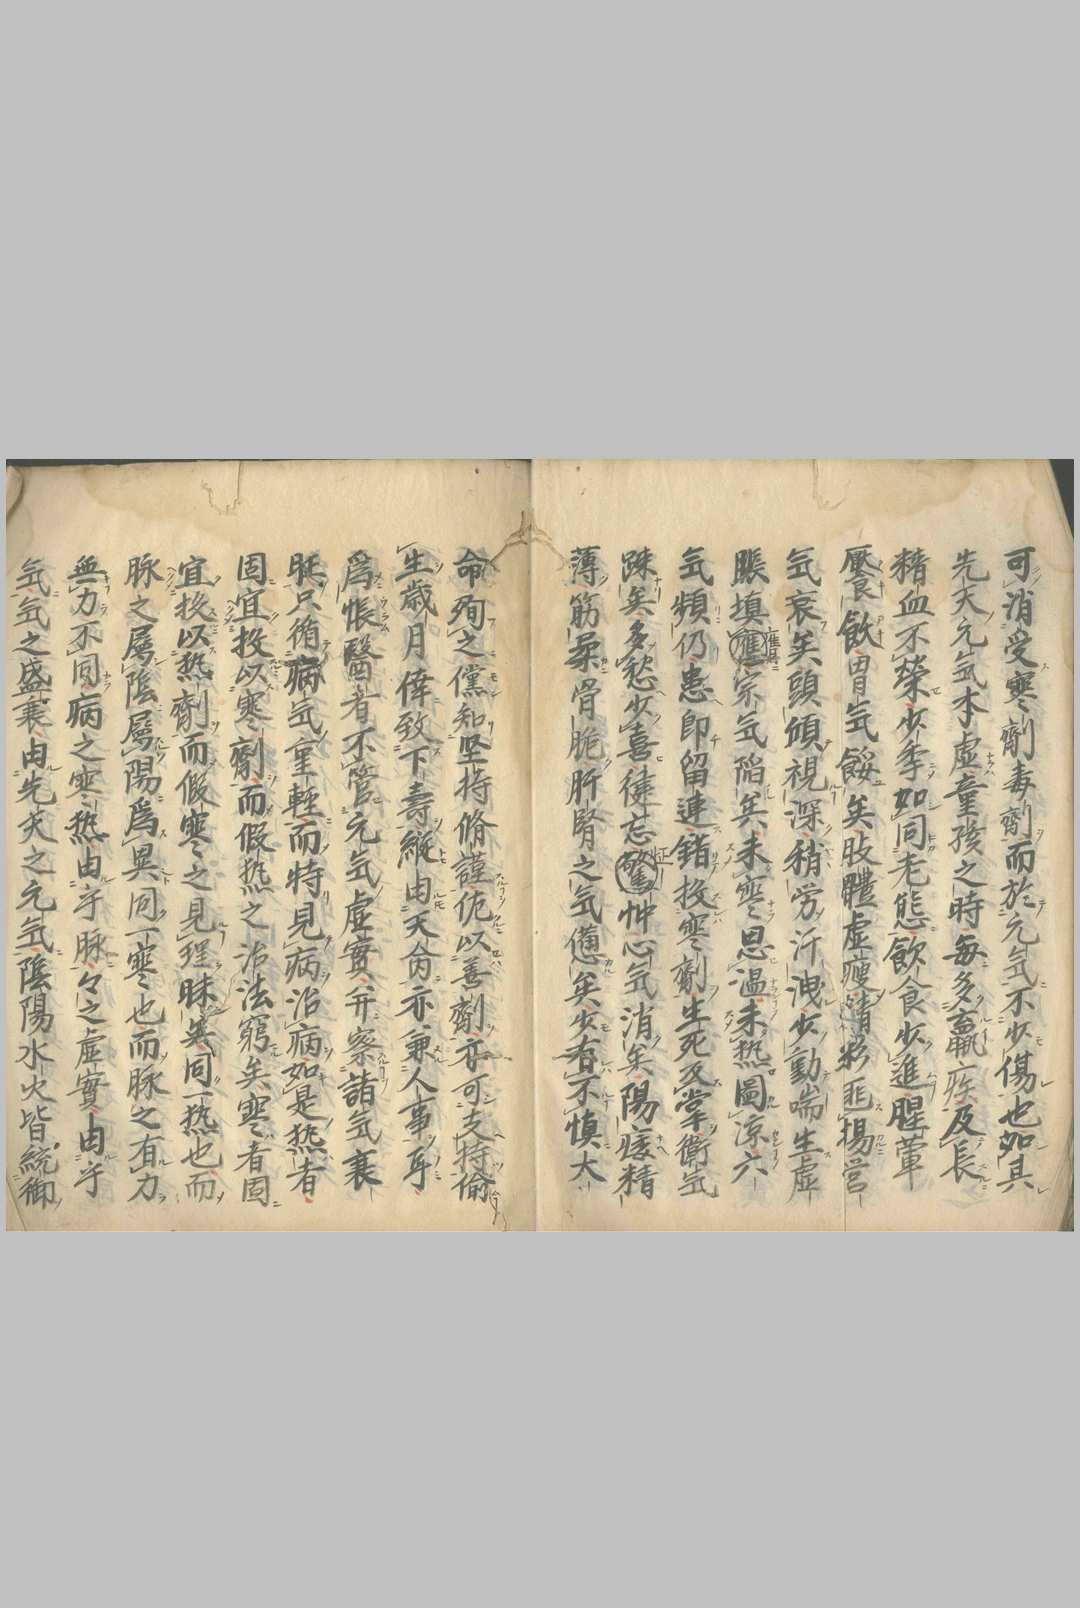 可消受寒劑毒劑而於元気不少傷也如其
先天元気本虛童孩之時每多羸疾及長
精血不榮少季如同老態飲食少進腥葷
饜飫胃気餒矣肢體虛瘦情彩匪揚營
気衰矣頭傾視深稍労汗洩少動喘生虛
脹填膺宗気陷矣未寒思溫未热圖凉六
気頻仍患即留連錯投寒劑生死反掌衛気
踈矣多愁少喜健忘怔忡心気消矣陽痿精
薄筋柔骨脆肝腎之気憊矣少有不慎大
命殉之儻知坚持脩謹佐以善劑亦可支持偷
生歲月倖致下壽縱由天命亦兼人事耳
爲悵醫者不管元気虛實并察諸気衰
旺只循病気重輕而特見病治病如是热者
固宜投以寒劑而假热之治法窮矣寒者固
宜投以热劑而假寒之見理昧矣同一热也而
脉之屬陰屬陽爲異同一寒也而脉之有力
無力不同病之寒热由乎脉々之虛實由乎
気気之盛衰由先天之元気陰陽水火皆統御